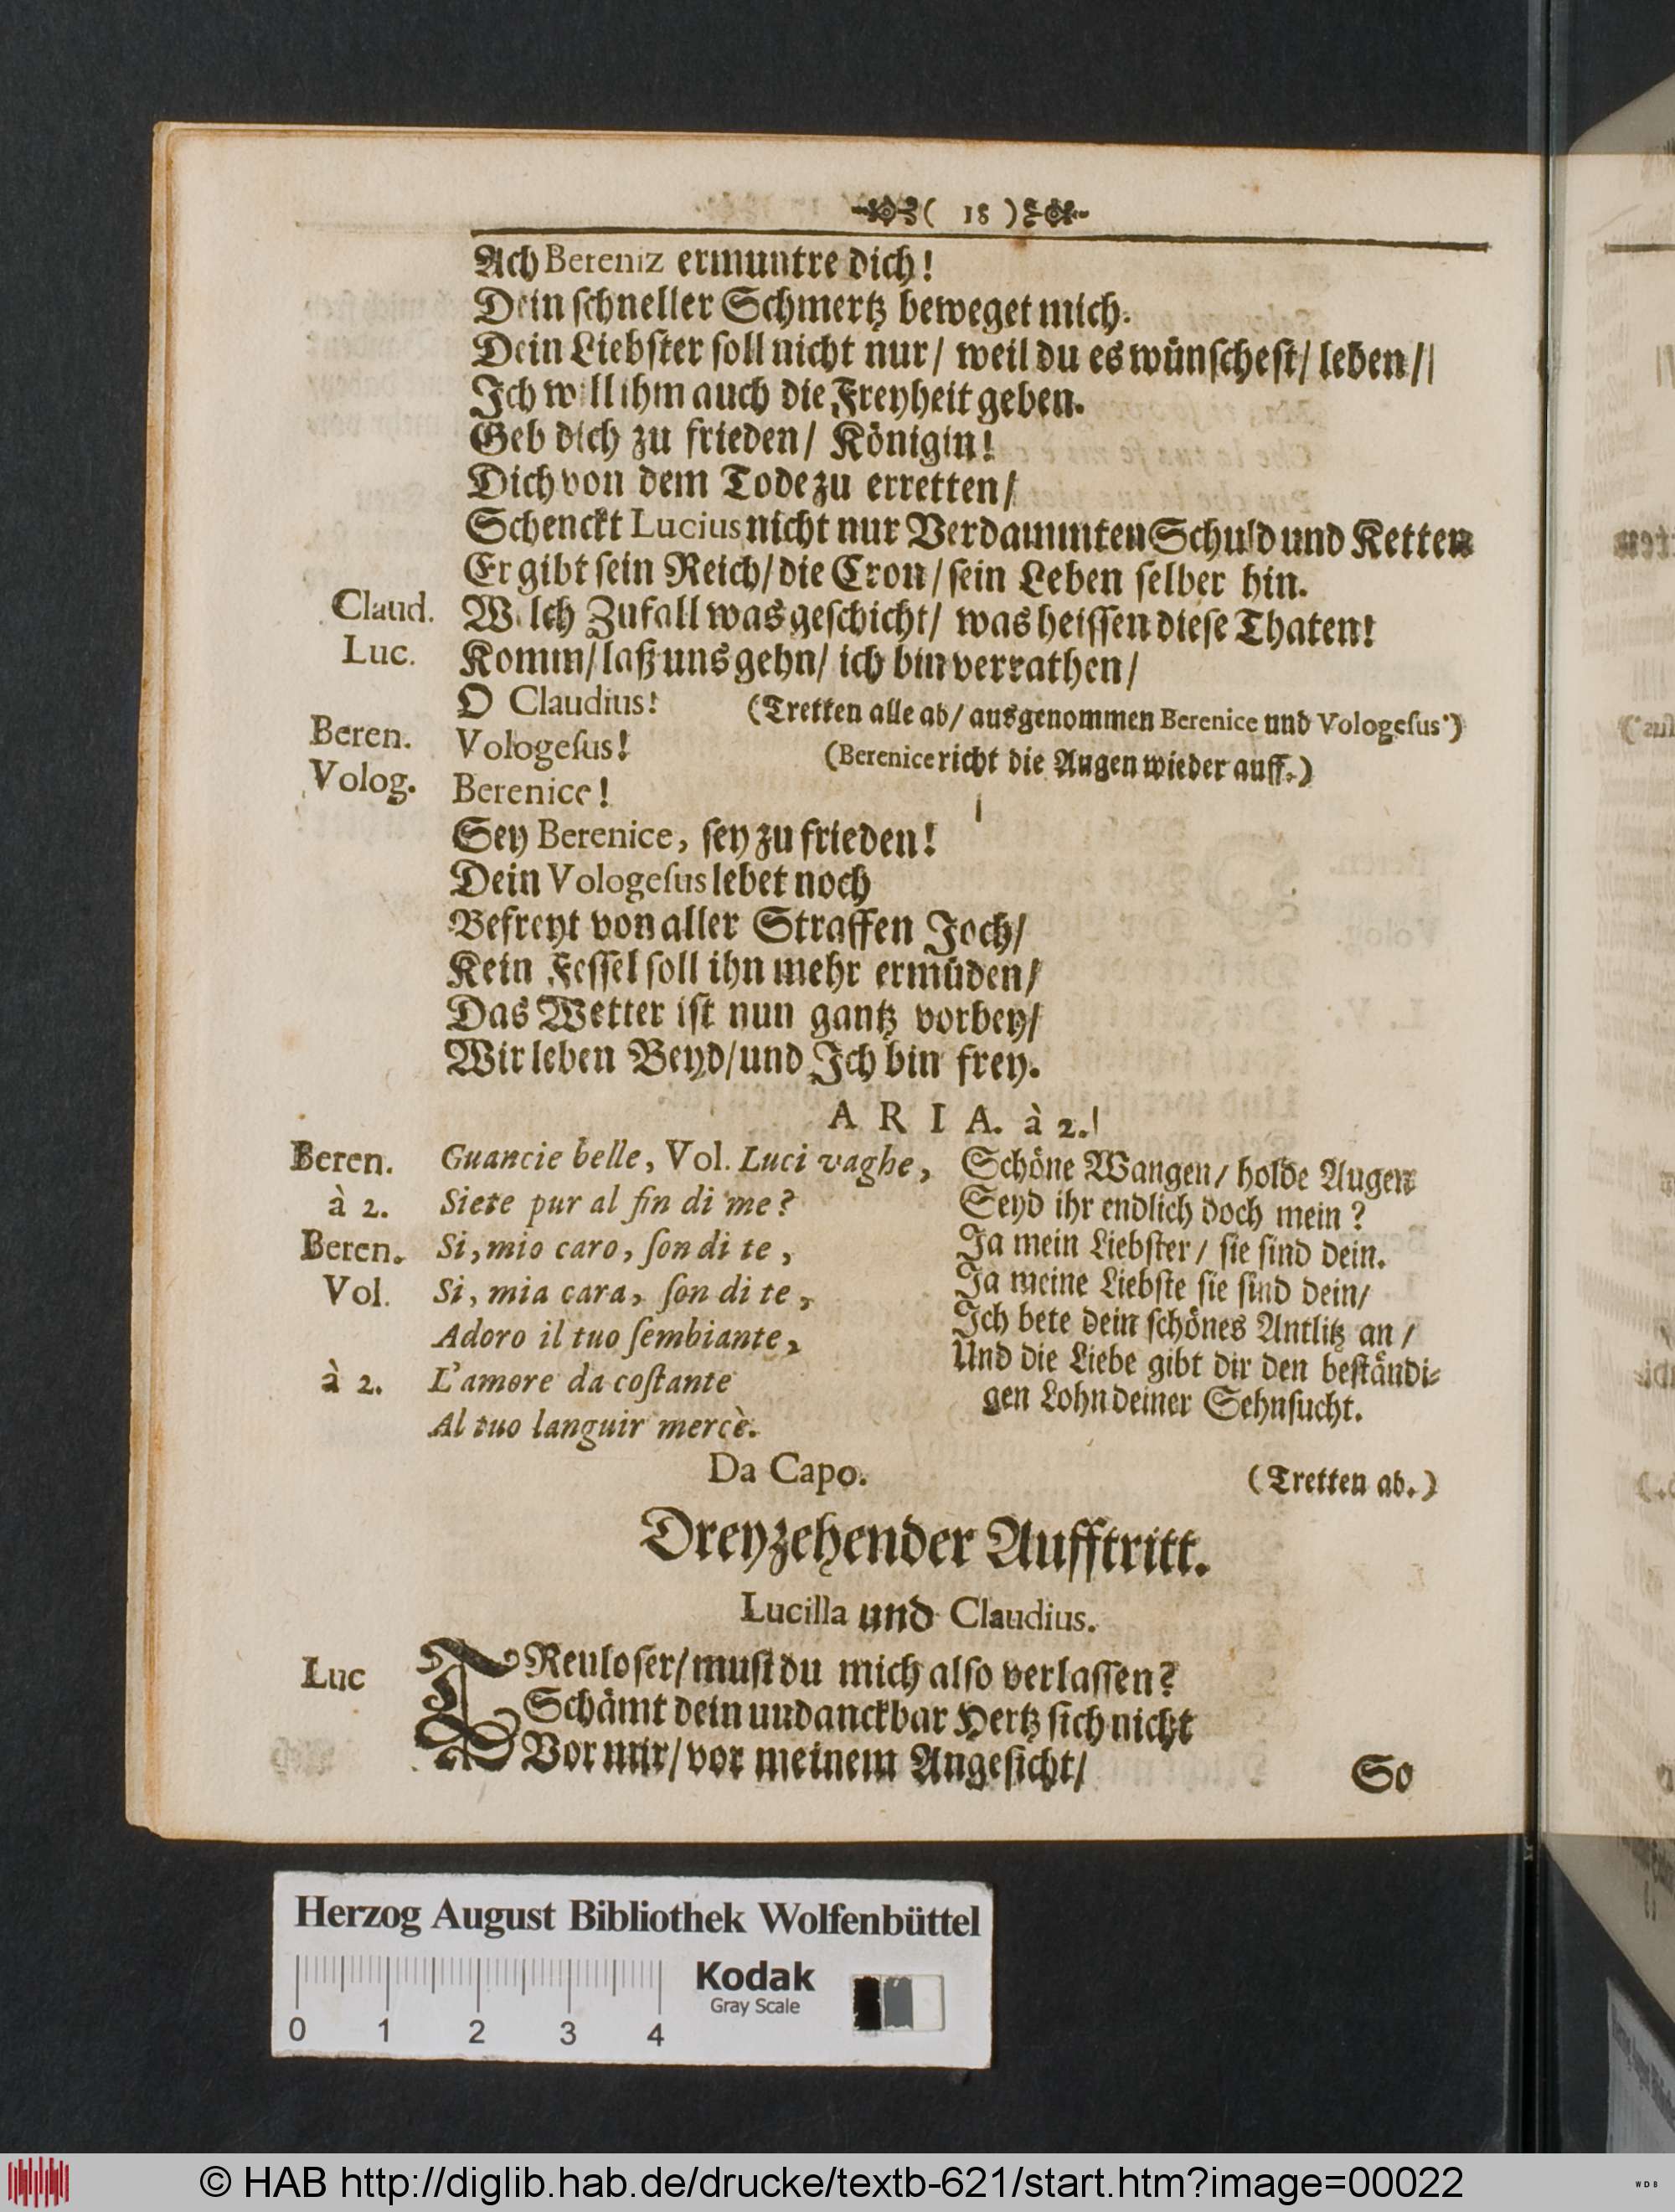 ( 18 )
Ach Bereniz ermuntre dich!
Dein ſchneller Schmertz beweget mich.
Dein Liebſter ſoll nicht nur/ weil du es wünſcheſt/ leben/
Ich will ihm auch die Freyheit geben.
Geb dich zu frieden/ Königin!
Dich von dem Tode zu erretten/
Schenckt Lucius nicht nur Verdammten Schuld und Ketten
Er gibt ſein Reich/ die Cron/ ſein Leben ſelber hin.
Claud. Welch Zufall was geſchicht/ was heiſſen dieſe Thaten!
Luc. Komm/ laß uns gehn/ ich bin verrathen/
O Claudius! (Tretten alle ab/ ausgenommen Berenice und Vologeſus.)
Beren. Vologeſus! (Berenice richt die Augen wieder auff.)
Volog. Berenice!
Sey Berenice, ſey zu frieden!
Dein Vologeſus lebet noch
Befreyt von aller Straffen Joch/
Kein Feſſel ſoll ihn mehr ermüden/
Das Wetter iſt nun gantz vorbey/
Wir leben Beyd/ und Ich bin frey.
ARIA. à 2.
Beren. Guancie belle, Vol. Luci vaghe, Schöne Wangen/ holde Augen
à 2. Siete pur al fin di me? Seyd ihr endlich doch mein?
Beren. Si, mio caro, ſon di te, Ja mein Liebſter/ ſie ſind dein.
Vol. Si, mia cara, ſon di te, Ja meine Liebſte ſie ſind dein/
Adoro il tuo ſembiante, Ich bete dein ſchönes Antlitz an/
à 2. L'amore da coſtante Und die Liebe gibt dir den beſtändi-
Al tuo languir mercè. gen Lohn deiner Sehnſucht.
Da Capo. (Tretten ab.)
Dreyzehender Aufftritt.
Lucilla und Claudius.
Luc TReuloſer/ muſt du mich alſo verlaſſen?
Schämt dein undanckbar Hertz ſich nicht
Vor mir/ vor meinem Angeſicht/
So
Herzog August Bibliothek Wolfenbüttel
0 1 2 3 4
Kodak
Gray Scale
© HAB http://diglib.hab.de/drucke/textb-621/start.htm?image=00022
WDB